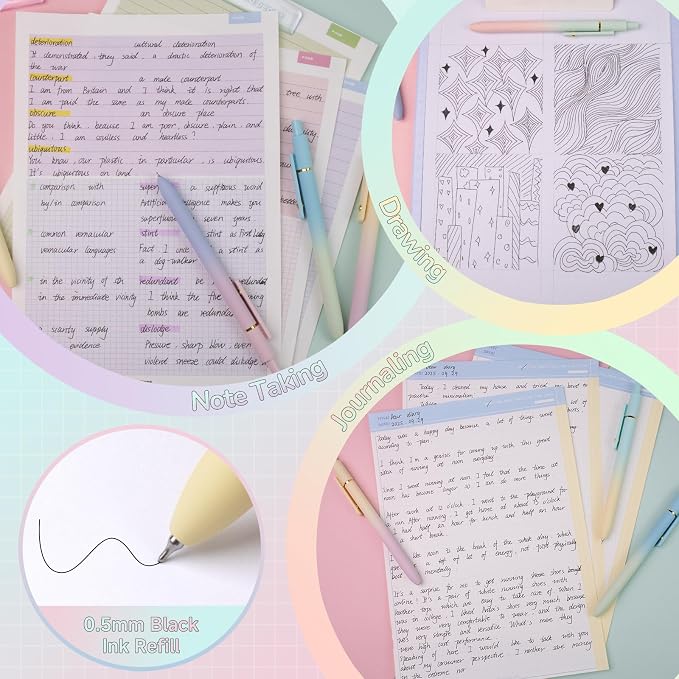 deterioration cultural deterioration
It demonstrated, they said, a drastic deterioration of
the war
counterpart a male counterpart
I am from Britain and I think it is right that
I am paid the same as my male counterparts.
obscure an obscure place
Do you think, because I am poor, obscure, plain, and
little, I am soulless and heartless?
ubiquitous
You know, our plastic in particular, is ubiquitous.
It's ubiquitous on land
comparison with
by/in comparison
common vernacular
vernacular languages
in the vicinity of
in the immediate vicinity
a scanty supply
evidence
a superfluous word
Artificial intelligence makes you
superfluous seven years
stint stint as First Lady
Fact, I once a stint as
a dog-walker
redundant be redundant
I think the
bombs are redundant
dislodge
Pressure, sharp blow, even
violent sneeze could dislodge
tree, with
Note Taking
Drawing
Journaling
Dear diary
2025. 09. 29
Today, I cleaned my house and tried
Dear diary
2025. 09. 29
Today was a happy day because a lot of things went
according to plan.
I think I'm a genius for coming up with this great
idea of running at noon everyday
Since I went running at noon, I feel that the time at
noon has become longer so I can do more things
After work at 12 o'clock, I went to the playground for
a run. After running, I got home at about 13 o'clock
I had half an hour for lunch and half an hour
a short break.
like noon to the break of the whole day, which
give a lot of energy, not just physically
but mentally
It's a surprise for me to get running shoes bought
online! It's a pair of white running shoes with
leather tops which are easy to take care of. When I
was in college, I liked these shoes very much because
they were very comfortable to wear, and the design
was very simple and versatile. What's more, they
were high cost performance.
Speaking of here, I would like to talk with you
about my consumer perspective. I neither save money
in the extreme nor
0.5mm Black
Ink Refill